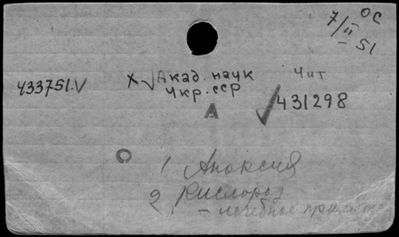 ОС
7/II 51
433751.V
X√ Акад. наук
Укр. сср
Чит
√431298
А
1 Аноксия
2 Кислород
– лечебное